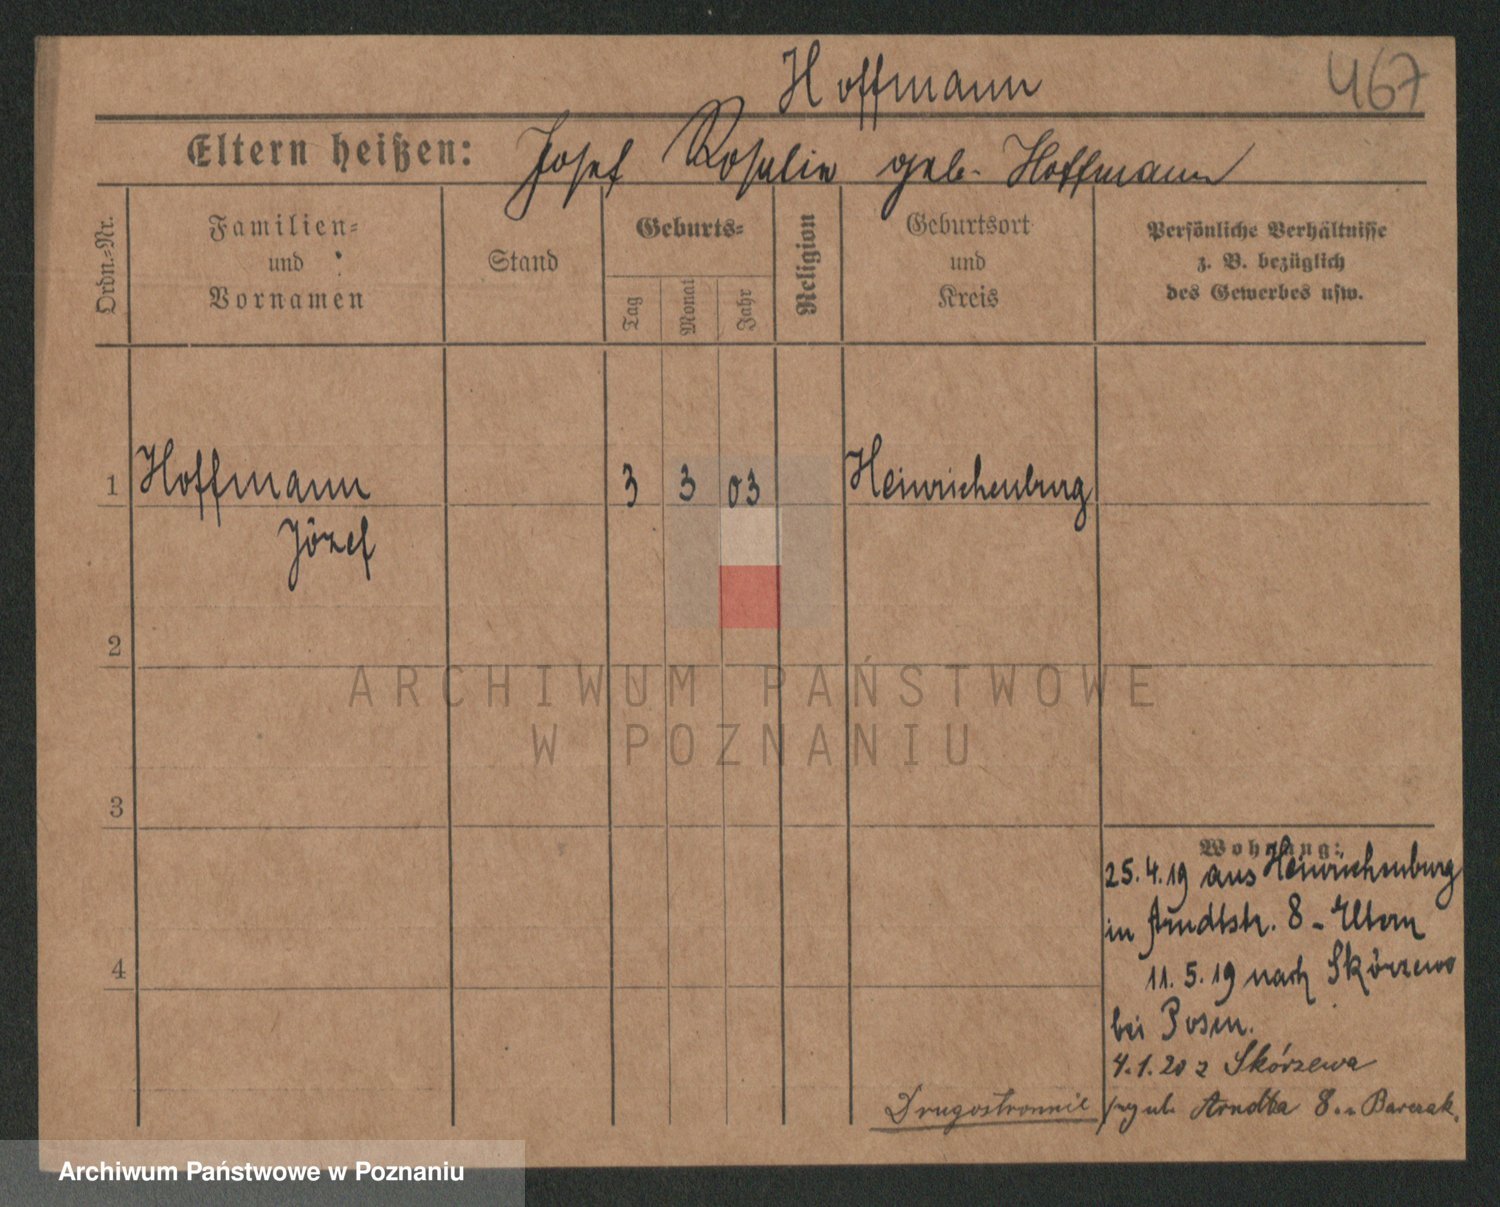 Hoffmann
467
Eltern heißen: Josef Rosalie geb. Hoffmann
Ordn.-Nr.
Familien-
und
Vornamen
Stand
Geburts-
Tag
Monat
Jahr
Religion
Geburtsort
und
Kreis
Persönliche Verhältnisse
z. B. bezüglich
des Gewerbes usw.
1 Hoffmann 3 3 03 Heinrichenburg
Józef
2
ARCHIWUM PAŃSTWOWE
W POZNANIU
3
Wohnung:
25.4.19 aus Heinrichenburg
in Arndtstr. 8 - Eltern
4
11.5.19 nach Skórzewo
bei Posen.
4.1.20 z Skórzewa
Drugostronnie
Arndta 8. Barczak.
Archiwum Państwowe w Poznaniu